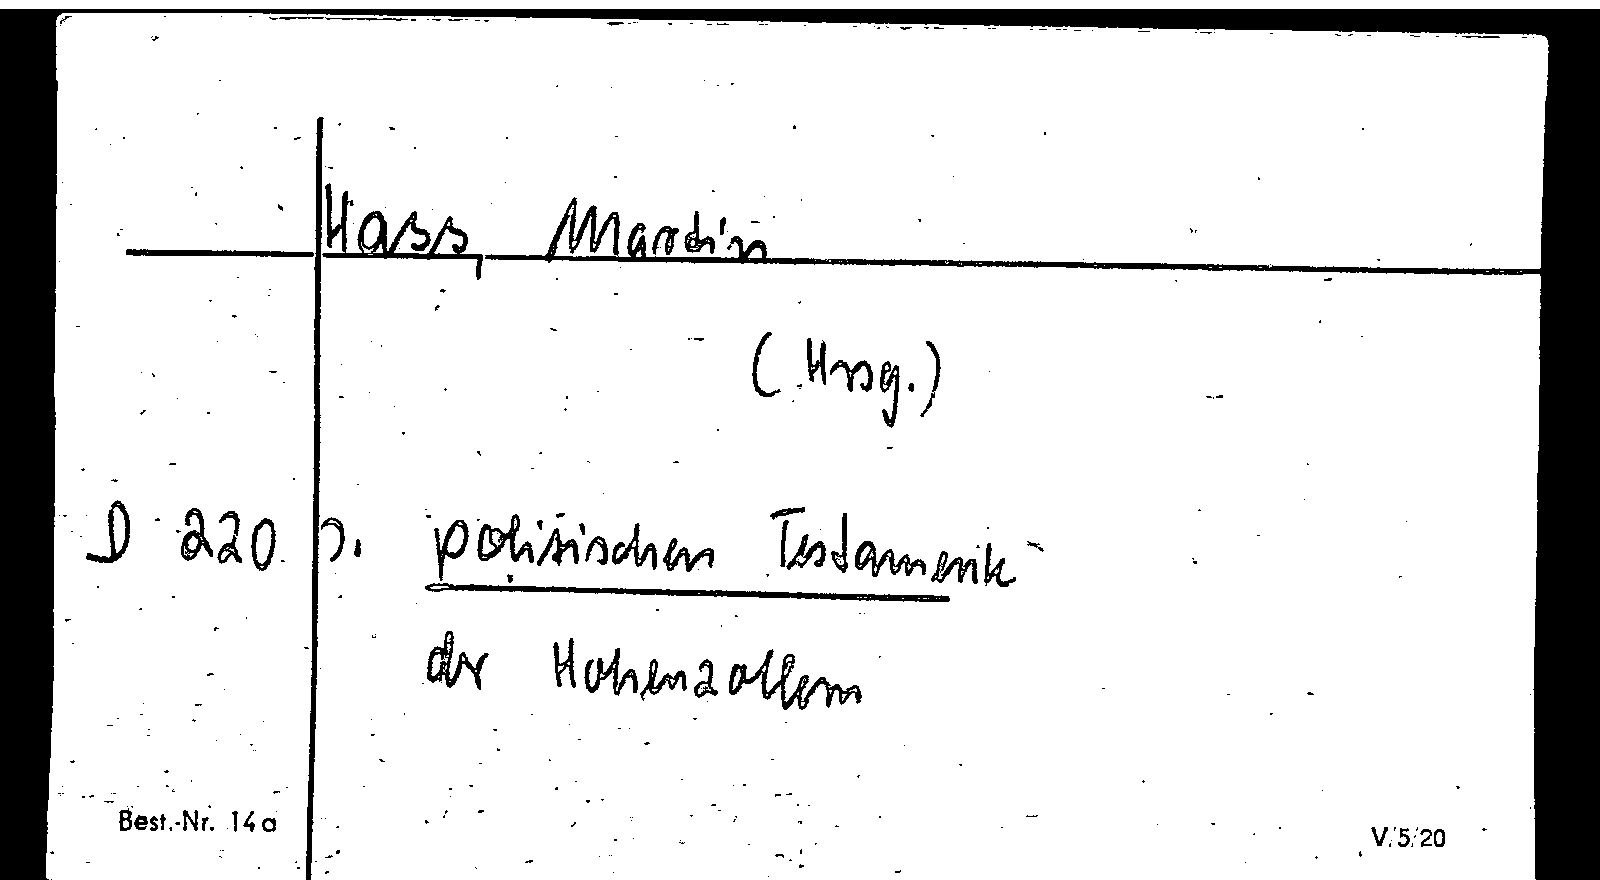 Hass, Martin
(Hrsg.)
D 220 D. politischen Testamente
der Hohenzollern
Best.-Nr. 14a
V/5/20